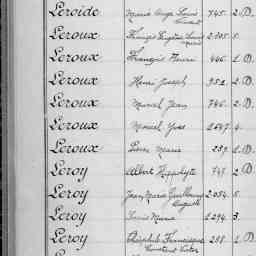 Leroide Marie Ange Louis 745. 2 D.
Leroux François Eugène Louis Marie 2.005. 5.
Leroux François Henri 446. 1 D.
Leroux Henri Joseph 952. 2 D.
Leroux Marcel Jean 746. 2 D.
Leroux Marcel Yves 2.647. 4.
Leroux Pierre Marie 259. 1 D.
Leroy Albert Hippolyte 748. 2 D.
Leroy Jean Marie Guillaume Auguste 2.054. 5.
Leroy Louis Marie 1.294. 3.
Leroy Théophile Francisque Constant Victor 288. 1 D.